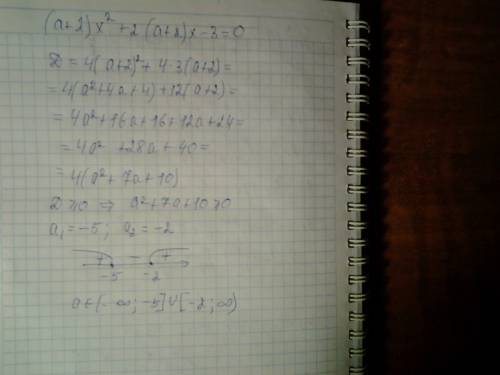 (a+2)x²+2(a+2)x-3=0
D=4(a+2)²+4·3(a+2)=
=4(a²+4a+4)+12(a+2)=
=4a²+16a+16+12a+24=
=4a²+28a+40=
=4(a²+7a+10)
D≥0 ⇒ a²+7a+10≥0
a₁=-5; a₂=-2
+ - +
-5 -2
a∈(-∞;-5]∪[-2;∞)